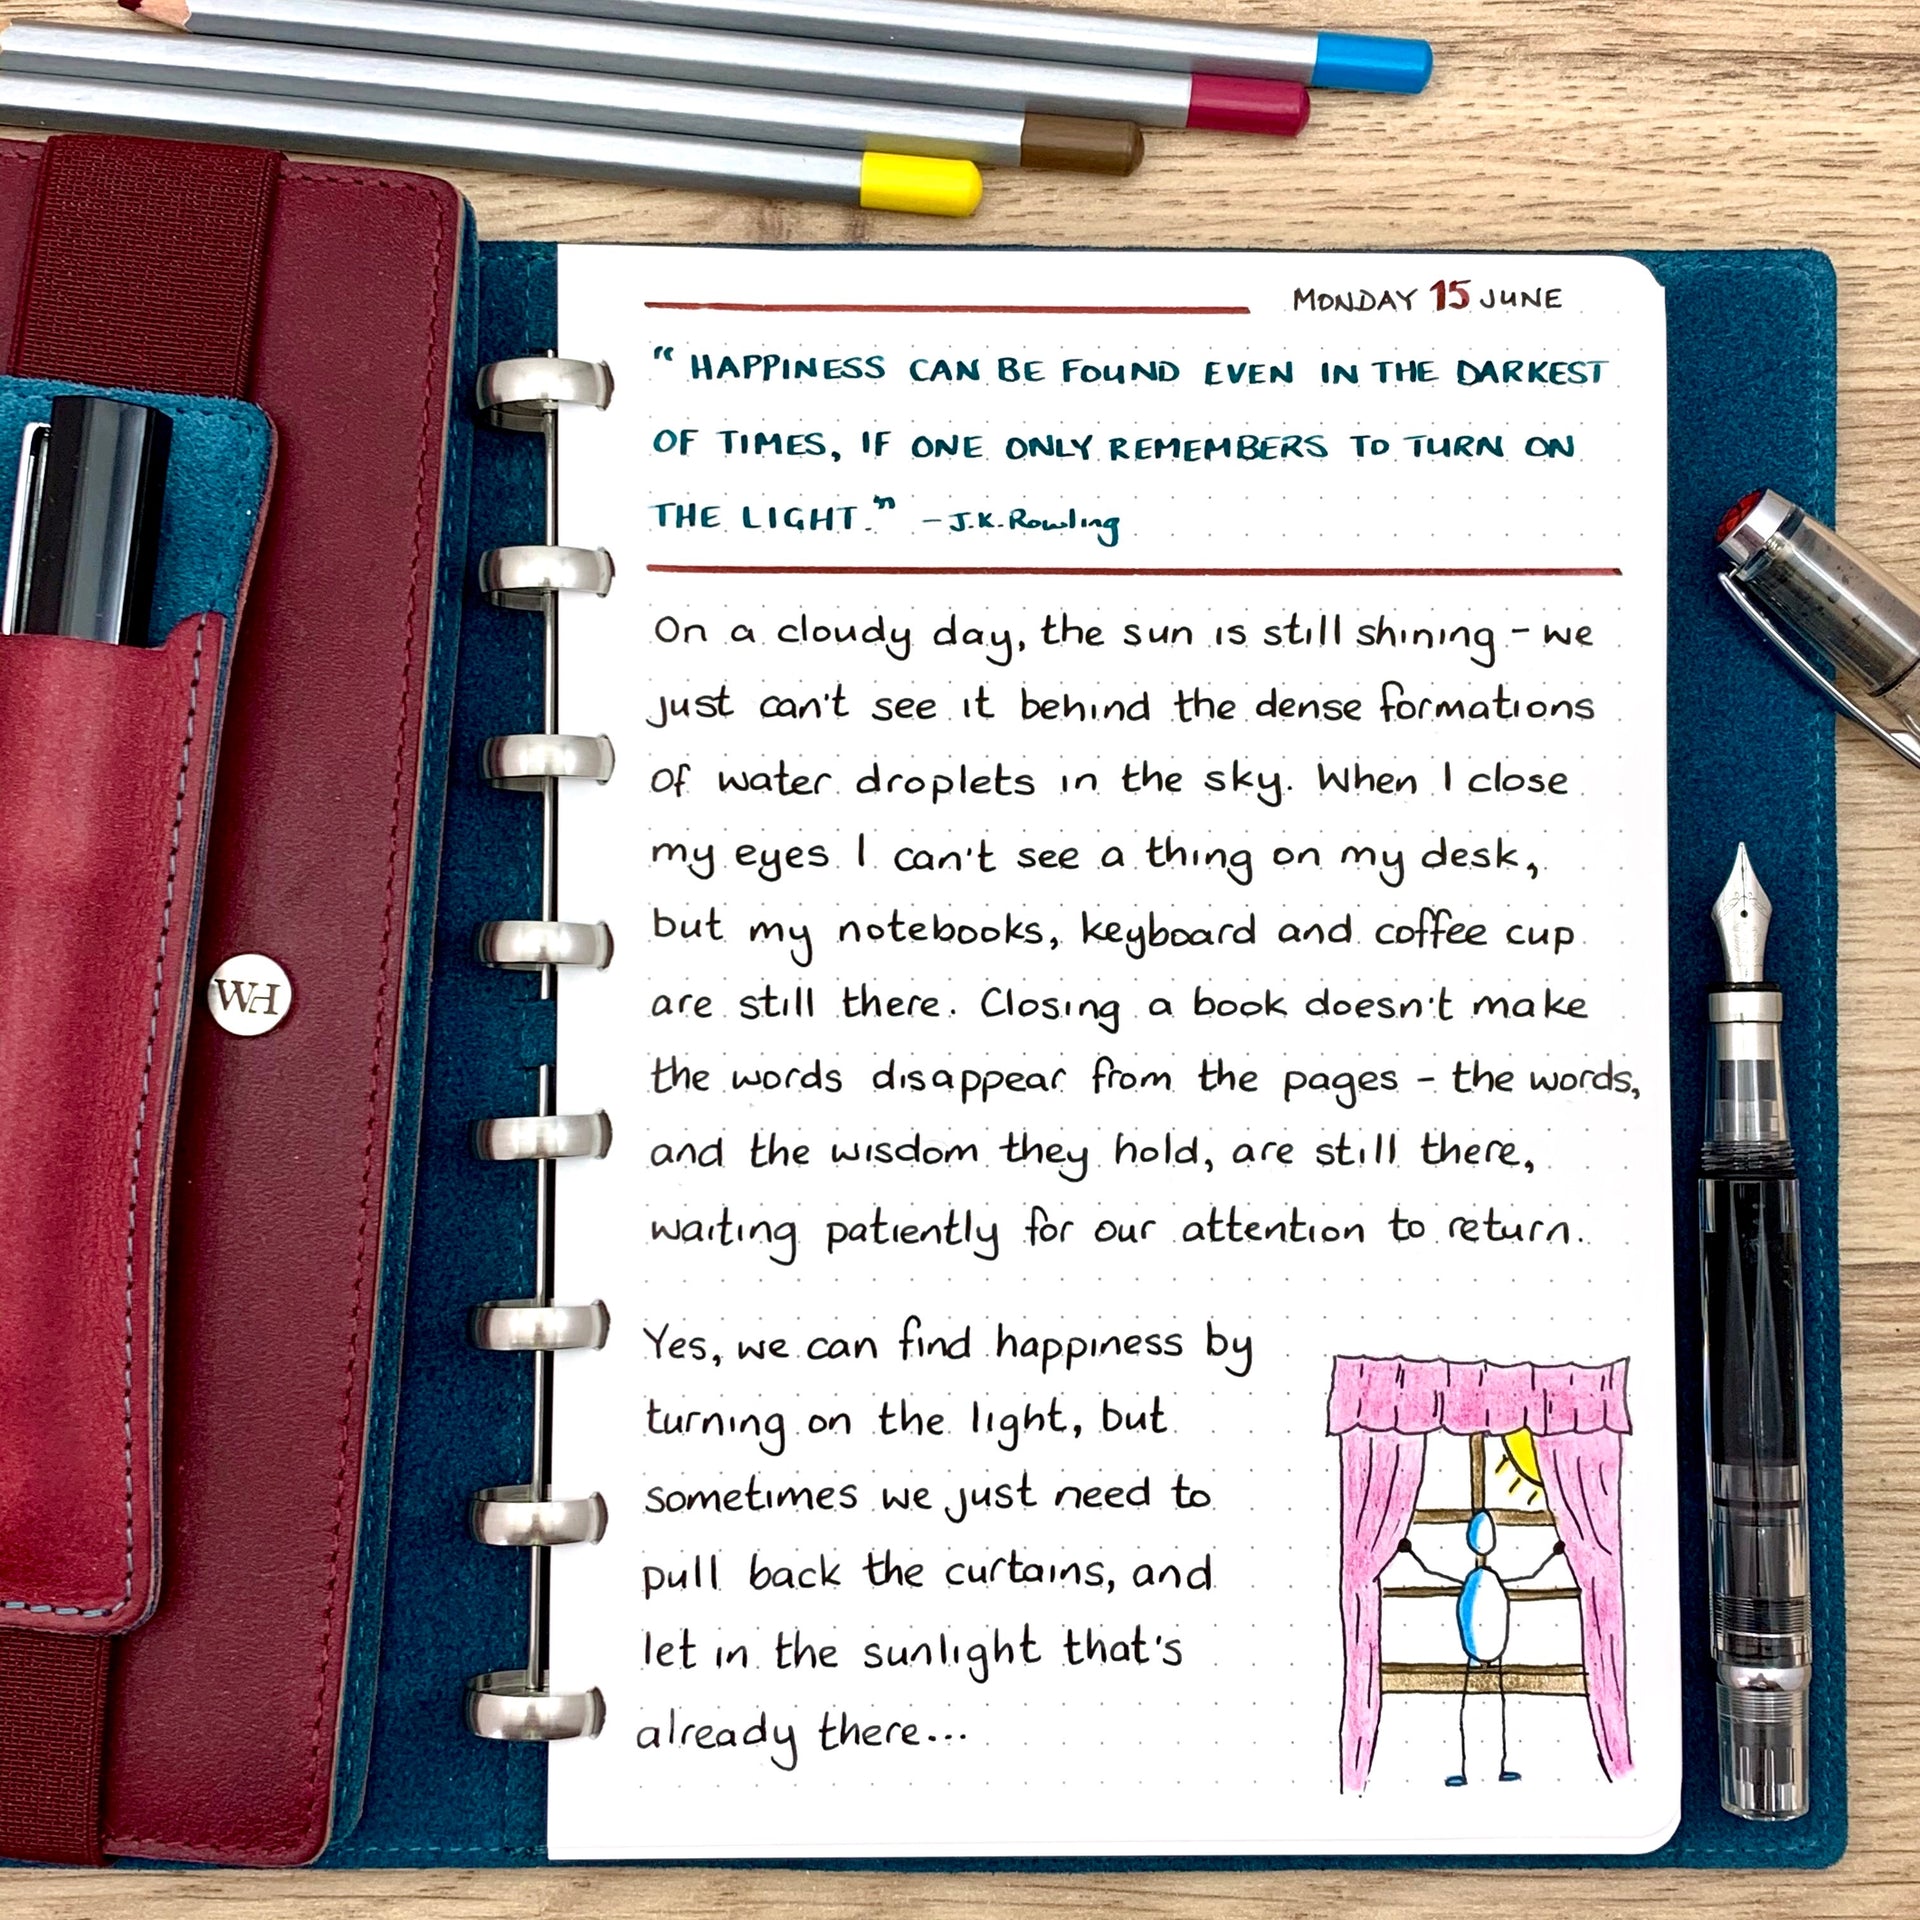 MONDAY 15 JUNE
“ HAPPINESS CAN BE FOUND EVEN IN THE DARKEST
OF TIMES, IF ONE ONLY REMEMBERS TO TURN ON
THE LIGHT.” – J.K. Rowling
On a cloudy day, the sun is still shining – we
just can't see it behind the dense formations
of water droplets in the sky. When I close
my eyes I can't see a thing on my desk,
but my notebooks, keyboard and coffee cup
are still there. Closing a book doesn't make
the words disappear from the pages – the words,
and the wisdom they hold, are still there,
waiting patiently for our attention to return.
Yes, we can find happiness by
turning on the light, but
sometimes we just need to
pull back the curtains, and
let in the sunlight that's
already there...
WH